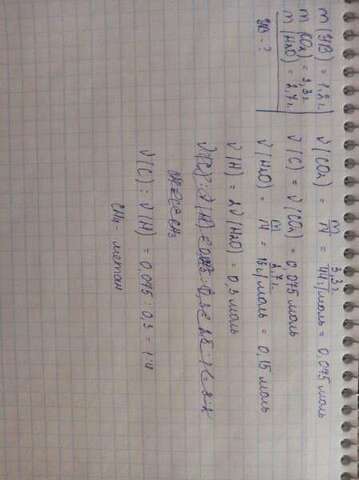 m(УВ) = 1,2 г
m(CO₂) = 3,3 г
m(H₂O) = 2,7 г
УВ - ?
ν(CO₂) = m/M = 3,3 г/44 г/моль = 0,075 моль
ν(C) = ν(CO₂) = 0,075 моль
ν(H₂O) = m/M = 2,7 г/18 г/моль = 0,15 моль
ν(H) = 2ν(H₂O) = 0,3 моль
ν(C) : ν(H) = 0,075 : 0,3 = 1:4
CH₄ - метан